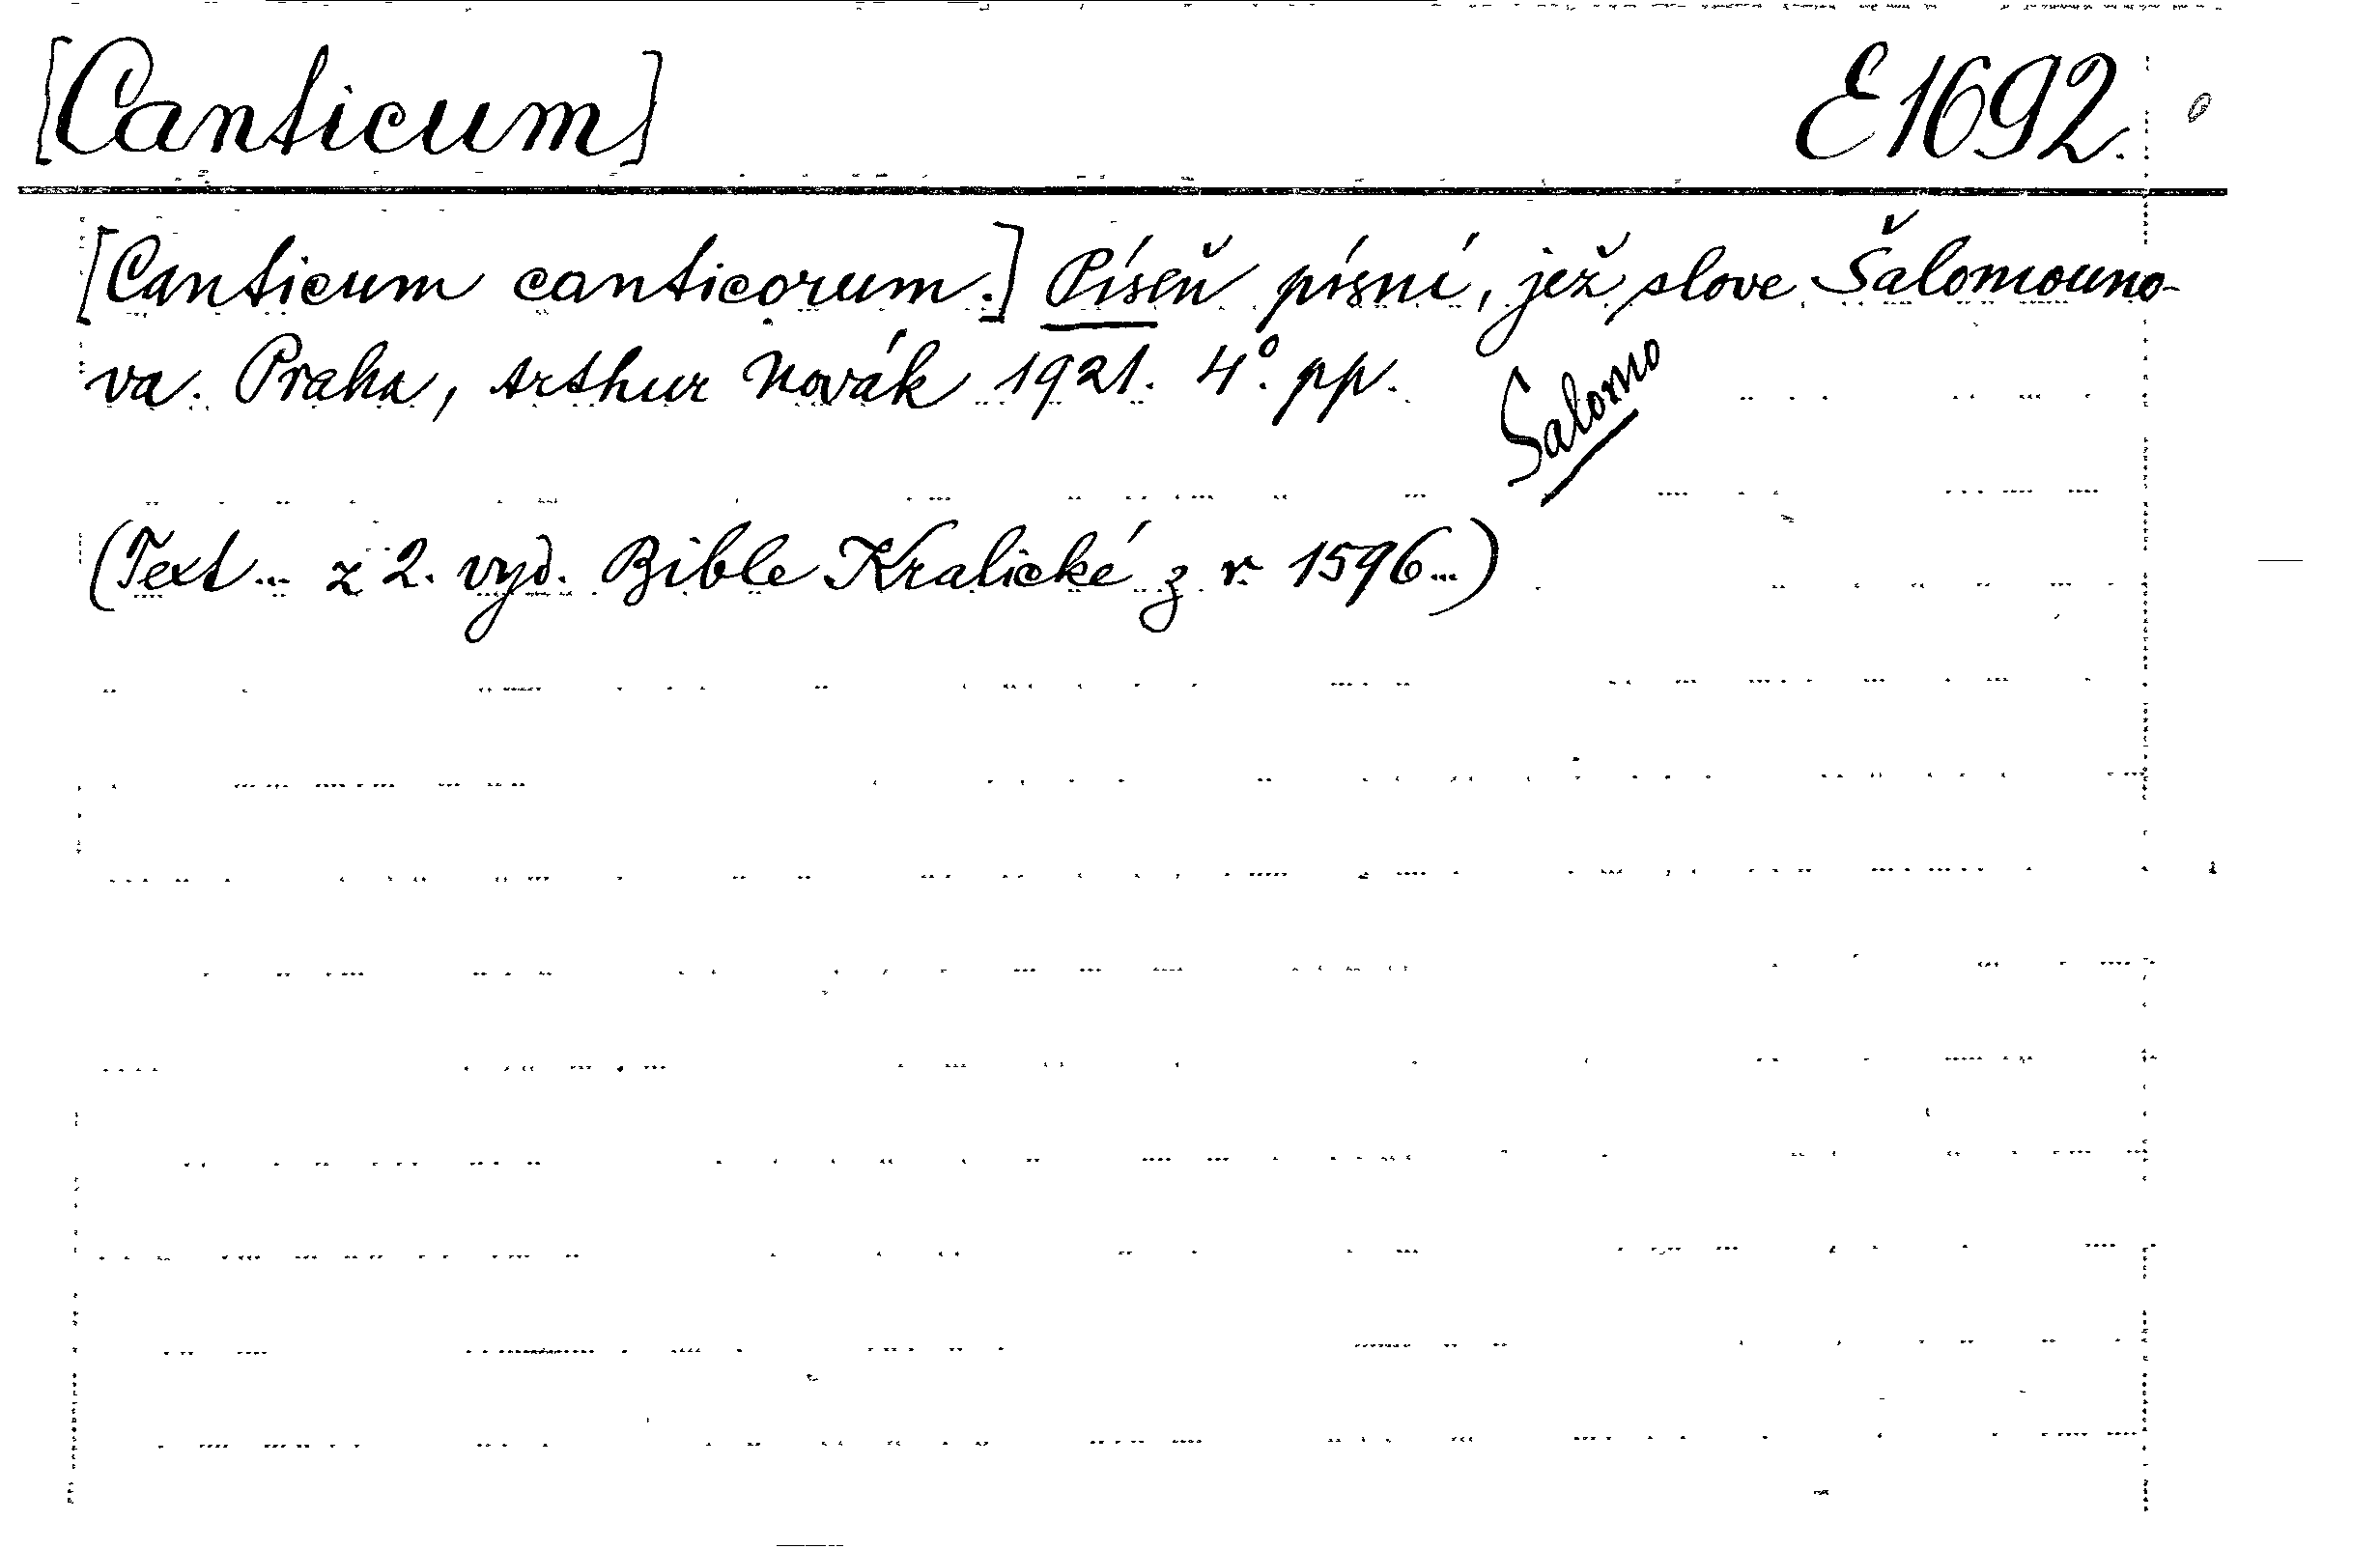 [Canticum] E1692.
[Canticum canticorum.] Píseň písní, jež slove Šalomouno-
va. Praha, Arthur Novák 1921. 4°. pp.
Salomo
(Text... z 2. vyd. Bible Kralické z r. 1596...)